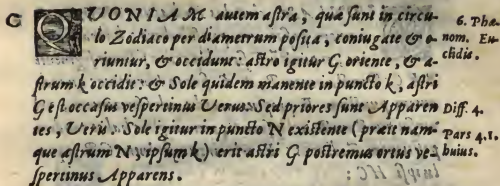 G QVONIAM autem astra, quæ sunt in circu- 6. Phæ-
lo Zodiaco per diametrum posita, coniugate & o- nom. Eu-
riuntur, & occidunt: astro igitur G oriente, & a- clidis.
strum k occidit: & Sole quidem manente in puncto k, astri
G est occasus vespertinus Verus. Sed priores sunt Apparen Diff. 4.
tes, Veris. Sole igitur in puncto N existente (præit nam- Pars 4.1.
que astrum N, ipsum k) erit astri G postremus ortus ve- huius.
spertinus Apparens.